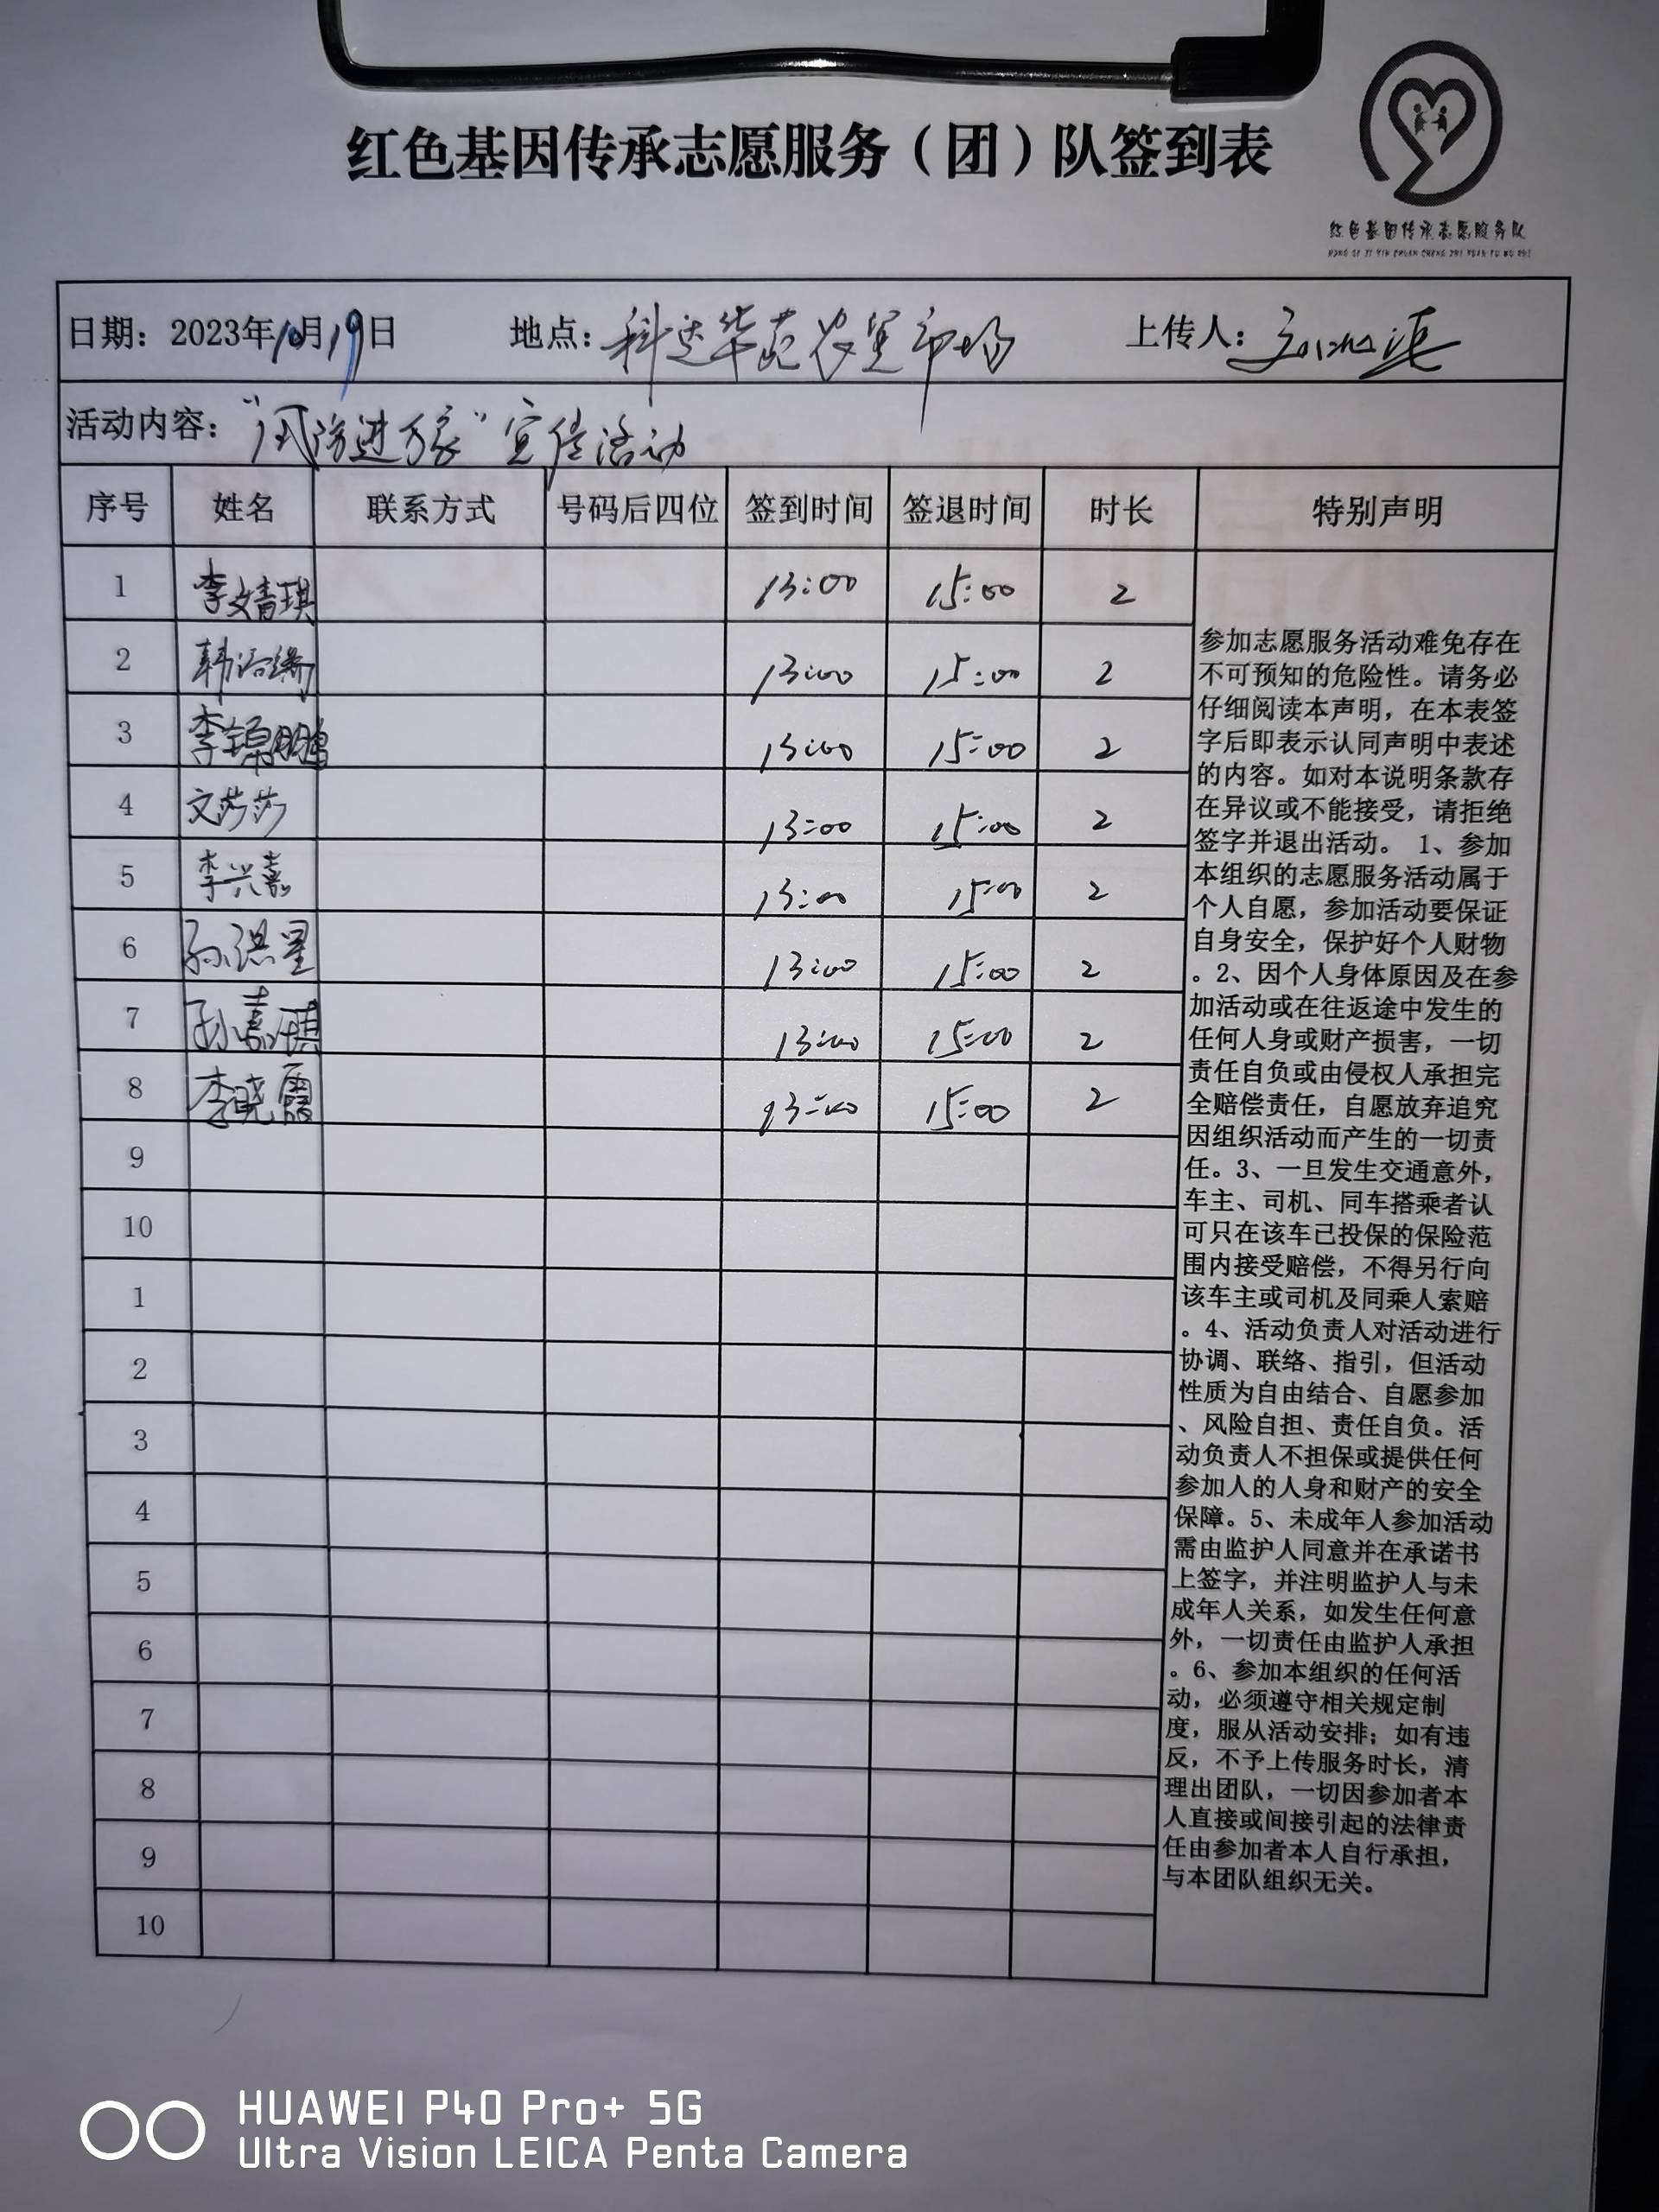 红色基因传承志愿服务（团）队签到表
红色基因传承志愿服务队
HONG SE JI YIN CHUAN CHENG ZHI YUAN FU WU DUI
日期：2023年10月19日 地点：科达华苑农贸市场 上传人：
活动内容：“风防进万家”宣传活动
序号 姓名 联系方式 号码后四位 签到时间 签退时间 时长 特别声明
1 李文靖琪 13:00 15:00 2
2 韩洺 13:00 15:00 2
3 李锦鹏 13:00 15:00 2
4 文莎莎 13:00 15:00 2
5 李兴嘉 13:00 15:00 2
6 孙淇星 13:00 15:00 2
7 孙嘉琪 13:00 15:00 2
8 李晓露 13:00 15:00 2
9
10
1
2
3
4
5
6
7
8
9
10
参加志愿服务活动难免存在
不可预知的危险性。请务必
仔细阅读本声明，在本表签
字后即表示认同声明中表述
的内容。如对本说明条款存
在异议或不能接受，请拒绝
签字并退出活动。 1、参加
本组织的志愿服务活动属于
个人自愿，参加活动要保证
自身安全，保护好个人财物
。2、因个人身体原因及在参
加活动或在往返途中发生的
任何人身或财产损害，一切
责任自负或由侵权人承担完
全赔偿责任，自愿放弃追究
因组织活动而产生的一切责
任。3、一旦发生交通意外，
车主、司机、同车搭乘者认
可只在该车已投保的保险范
围内接受赔偿，不得另行向
该车主或司机及同乘人索赔
。4、活动负责人对活动进行
协调、联络、指引，但活动
性质为自由结合、自愿参加
、风险自担、责任自负。活
动负责人不担保或提供任何
参加人的人身和财产的安全
保障。5、未成年人参加活动
需由监护人同意并在承诺书
上签字，并注明监护人与未
成年人关系，如发生任何意
外，一切责任由监护人承担
。6、参加本组织的任何活
动，必须遵守相关规定制
度，服从活动安排；如有违
反，不予上传服务时长，清
理出团队，一切因参加者本
人直接或间接引起的法律责
任由参加者本人自行承担，
与本团队组织无关。
HUAWEI P40 Pro+ 5G
Ultra Vision LEICA Penta Camera